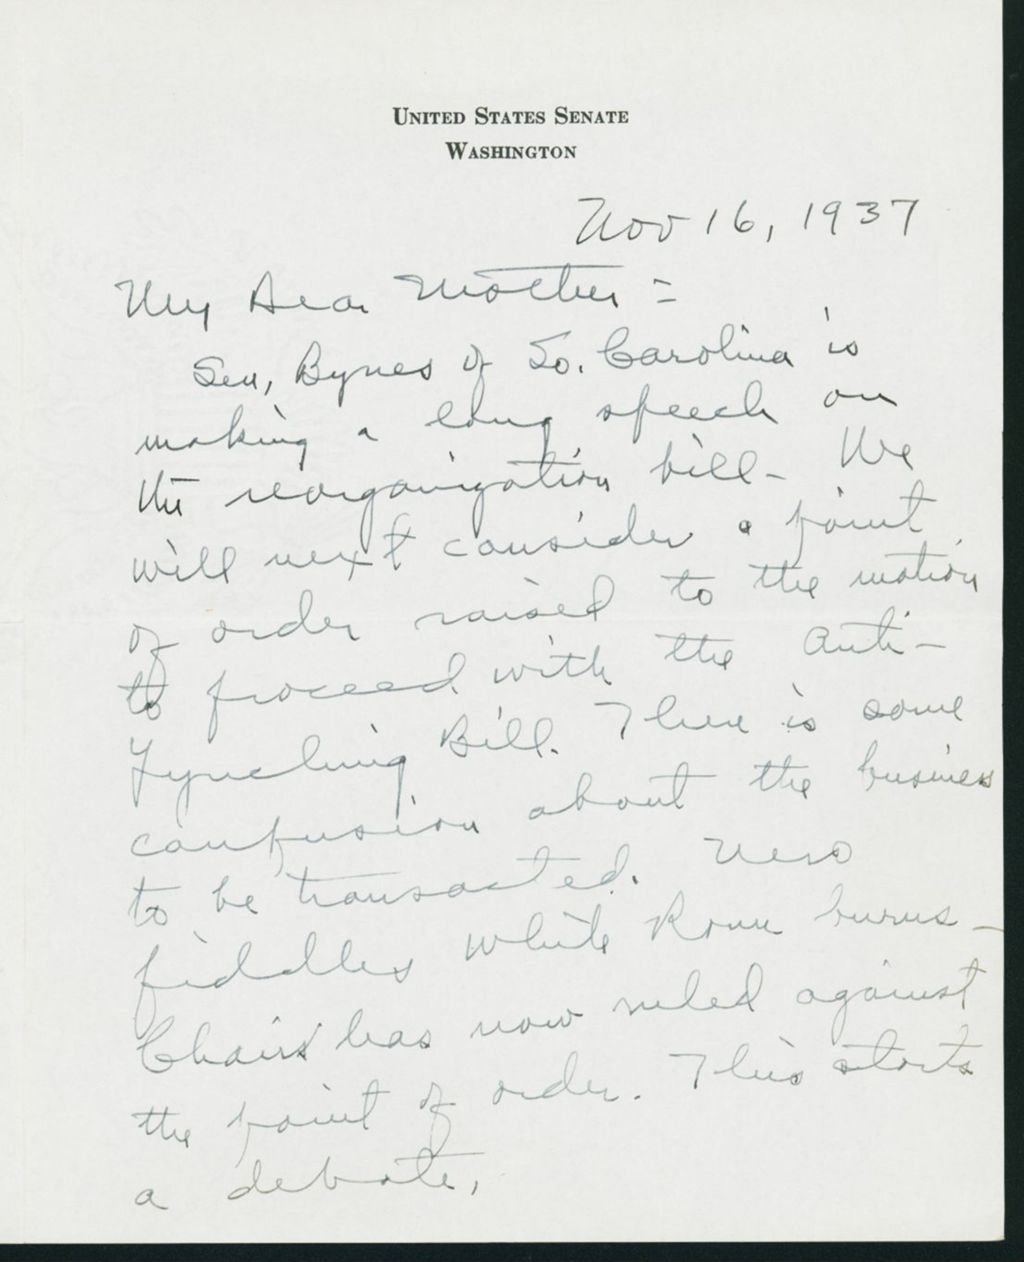 UNITED STATES SENATE
WASHINGTON
Nov 16, 1937
My Dear Mother =
Sen, Byrnes of So. Carolina is
making a long speech on
the reorganization bill - We
will next consider a point
of order raised to the motion
to proceed with the Anti-
Lynching Bill. There is some
confusion about the business
to be transacted. Nero
fiddles while Rome burns -
Chair has now ruled against
the point of order. This starts
a debate,